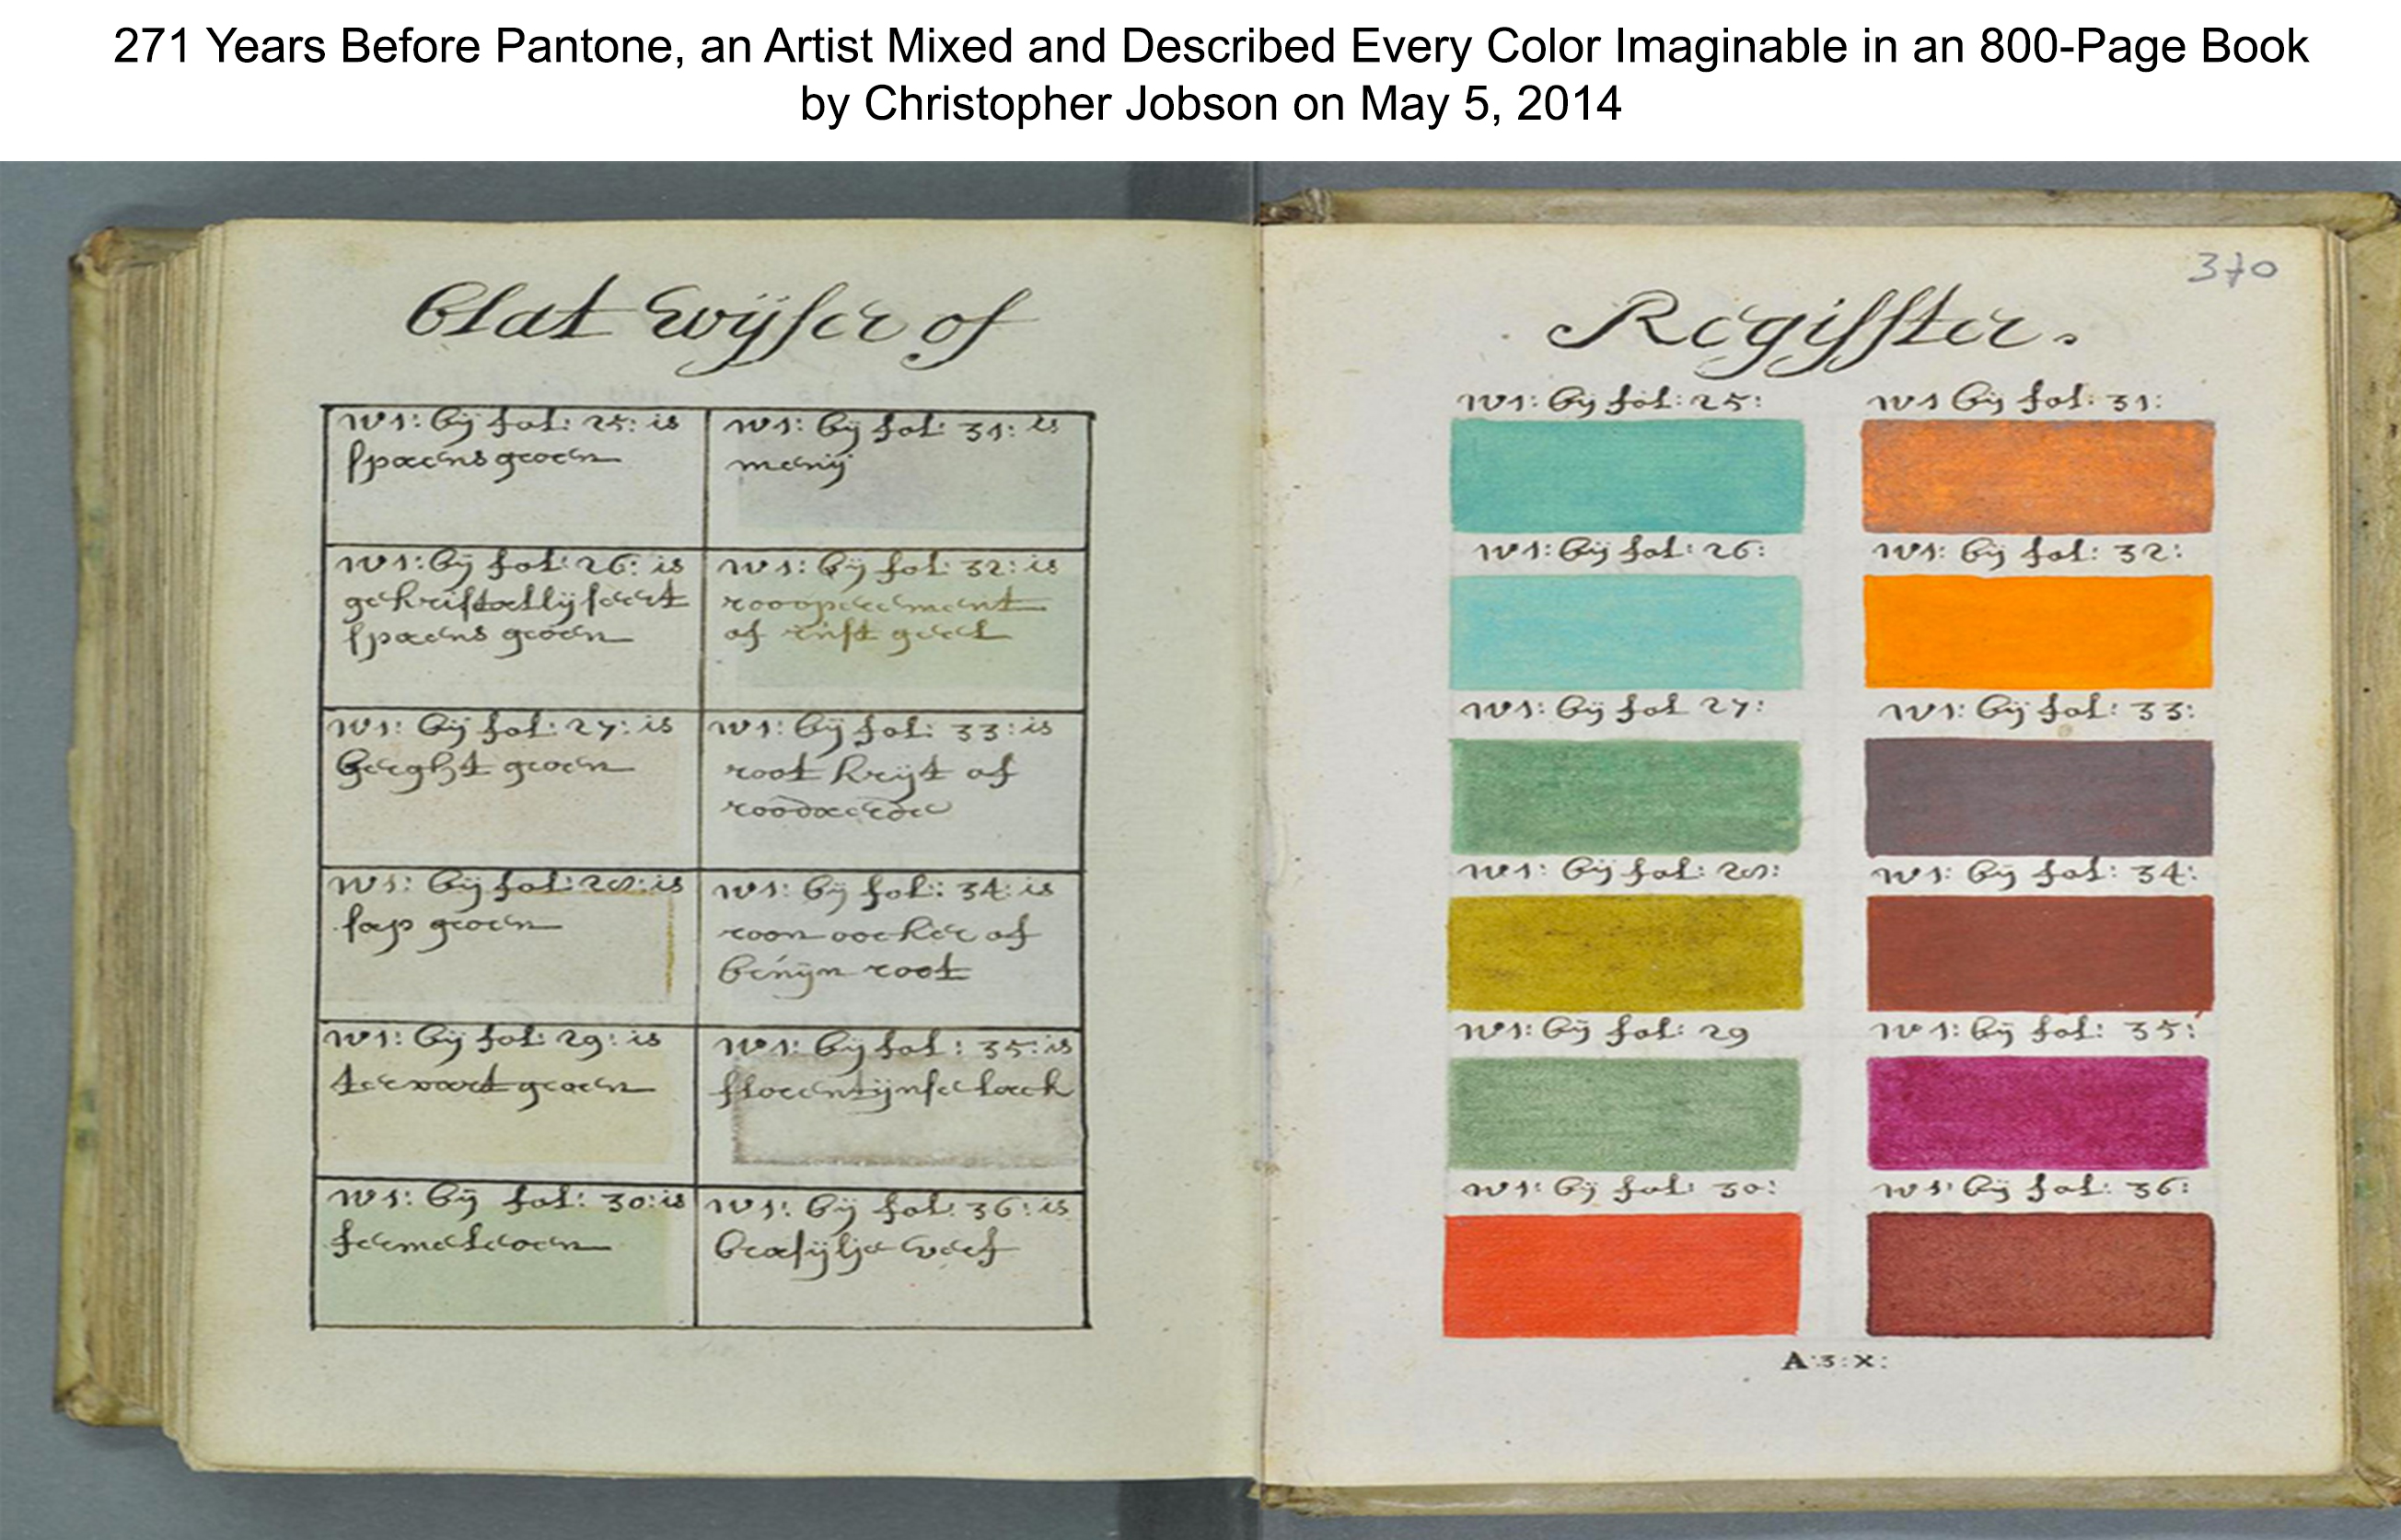 271 Years Before Pantone, an Artist Mixed and Described Every Color Imaginable in an 800-Page Book
by Christopher Jobson on May 5, 2014
Blat wÿser of
N1: bÿ fol: 25: is
spaens groen
N1: bÿ fol: 31: is
menÿ
N1: bÿ fol: 26: is
gekristallÿseert
spaens groen
N1: bÿ fol: 32: is
rooopreement
of rust geel
N1: bÿ fol: 27: is
berght groen
N1: bÿ fol: 33: is
root krÿt of
roodaerde
N1: bÿ fol: 28: is
sap groen
N1: bÿ fol: 34: is
roon oocker of
root
N1: bÿ fol: 29: is
groen
N1: bÿ fol: 35: is
florentÿnse lack
N1: bÿ fol: 30: is
N1: bÿ fol: 36: is
brasÿlje verf
370
Regisster.
N1: bÿ fol: 25:
N1 bÿ fol: 31:
N1: bÿ fol: 26:
N1: bÿ fol: 32:
N1: bÿ fol 27:
N1: bÿ fol: 33:
N1: bÿ fol: 28:
N1: bÿ fol: 34:
N1: bÿ fol: 29
N1: bÿ fol: 35:
N1: bÿ fol: 30:
N1: bÿ fol: 36:
A:3:X: